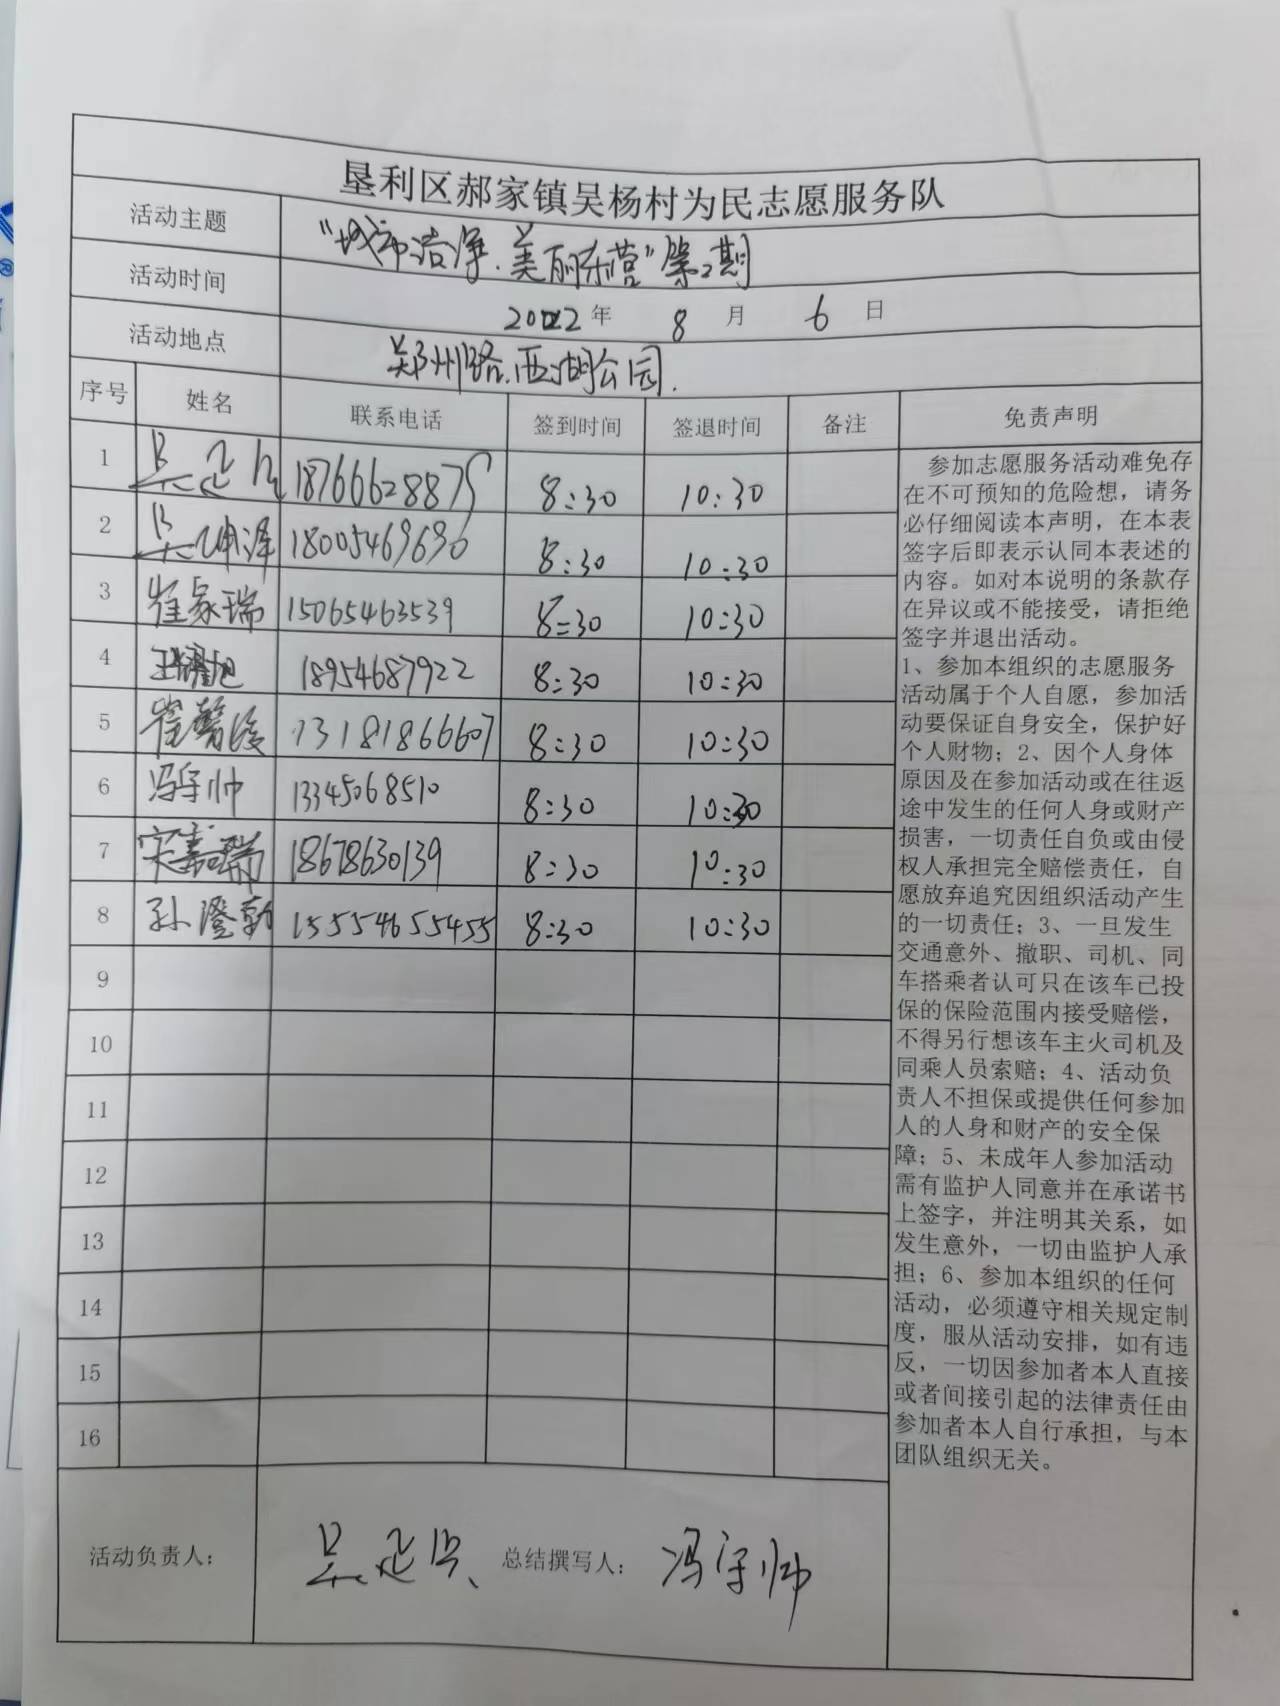 垦利区郝家镇吴杨村为民志愿服务队
活动主题 "城市洁净.美丽东营"第2期
活动时间 2022年 8 月 6 日
活动地点 郑州路.西湖公园.
序号 姓名 联系电话 签到时间 签退时间 备注 免责声明
1 吴延 18766628875 8:30 10:30
2 吴坤泽 18005469696 8:30 10:30
3 崔家瑞 15065463539 8:30 10:30
4 王耀旭 18954687922 8:30 10:30
5 崔馨 13181866607 8:30 10:30
6 冯宇帅 13345068510 8:30 10:30
7 宋嘉瑞 18678630139 8:30 10:30
8 孙澄 15554655455 8:30 10:30
9
10
11
12
13
14
15
16
参加志愿服务活动难免存
在不可预知的危险想，请务
必仔细阅读本声明，在本表
签字后即表示认同本表述的
内容。如对本说明的条款存
在异议或不能接受，请拒绝
签字并退出活动。
1、参加本组织的志愿服务
活动属于个人自愿，参加活
动要保证自身安全，保护好
个人财物；2、因个人身体
原因及在参加活动或在往返
途中发生的任何人身或财产
损害，一切责任自负或由侵
权人承担完全赔偿责任，自
愿放弃追究因组织活动产生
的一切责任；3、一旦发生
交通意外、撤职、司机、同
车搭乘者认可只在该车已投
保的保险范围内接受赔偿，
不得另行想该车主火司机及
同乘人员索赔；4、活动负
责人不担保或提供任何参加
人的人身和财产的安全保
障；5、未成年人参加活动
需有监护人同意并在承诺书
上签字，并注明其关系，如
发生意外，一切由监护人承
担；6、参加本组织的任何
活动，必须遵守相关规定制
度，服从活动安排，如有违
反，一切因参加者本人直接
或者间接引起的法律责任由
参加者本人自行承担，与本
团队组织无关。
活动负责人： 吴延 总结撰写人： 冯宇帅